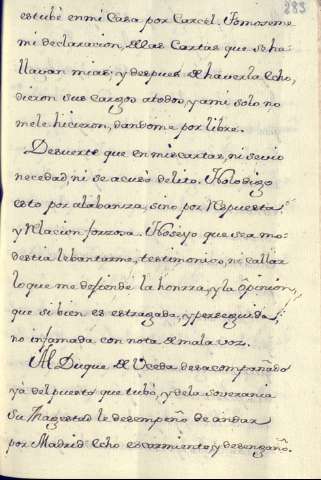 283
estubè en mi Casa por Carcel. Tomoseme
mi declaracion, de las Cartas que se ha-
llavan mias; y despues de haverla hecho,
dieron sus cargos atodos, y a mi solo no
me le hicieron, dandome por libre.
Desuerte que en mis cartas, ni se vio
necedad, ni se acusò delito. No lo digo
esto por alabanza, sino por Repuesta,
y Relacion forzosa. No se yo que sea mo-
destia lebantarme, testimonios, ni callar
lo que me defiende la honrra, y la opinion,
que si bien es estragada, y perseguida,
no infamada con nota de mala voz.
Al Duque de Uceda desacompañado
yà del puesto que tubò, y de la soverania
Su Magestad le desempeño de andar
por Madrid hecho escarmiento, y desengaño.